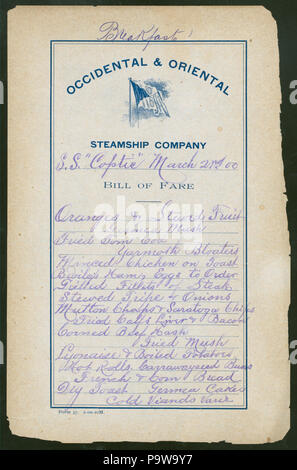 Breakfast
OCCIDENTAL & ORIENTAL
STEAMSHIP COMPANY
S.S. "Coptic" March 2nd 00
BILL OF FARE
Oranges & Stewed Fruit
Germea Mush
Fried Tom Cod
Yarmoth Bloaters
Minced Chicken on Toast
Broiled Ham, Eggs to Order
Fillets of Steak
Stewed Tripe & Onions
Mutton Chops & Saratoga Chips
Fried Calf's Liver & Bacon
Corned Beef Hash
Fried Mush
Lyonaise & Boiled Potatoes
Hot Rolls, Buns
French & Corn Bread
Dry Toast Germea Cakes
Cold Viands
alamy
Image ID: PW9W9Y7
www.alamy.com